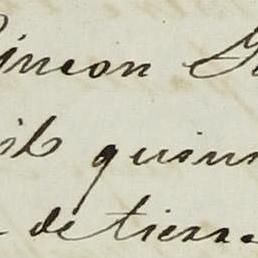 Rincon
mil quin
de tierra